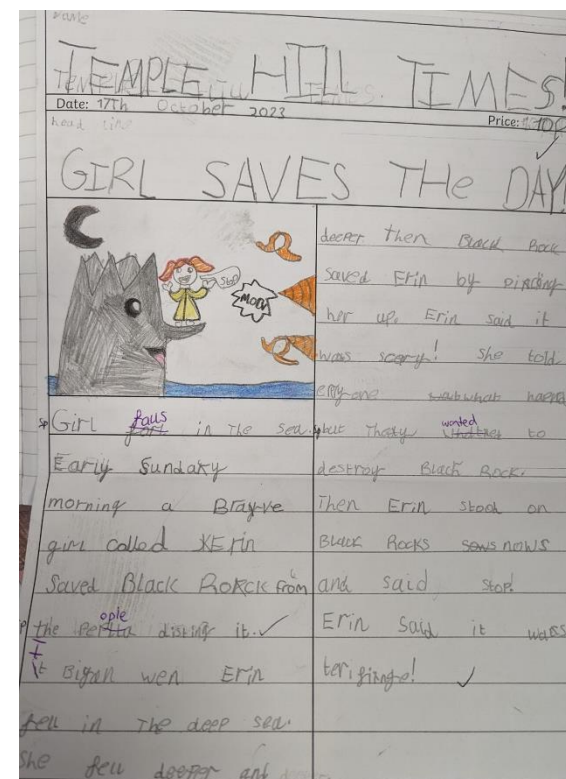 name
TEMPLE HILL TIMES!
Date: 17Th October 2023
Price: 10p
head line
GIRL SAVES THe DAY!
Stop
MOEY
Girl faus in The sea.
Early Sundaxy
morning a Brayve
girl called Erin
Saved Black Rorck from
the people disting it.
It Bigan wen Erin
fell in The deep sea.
She fell deeper and
deeper then Black Rock
saved Erin by picking
her up. Erin said it
was scary! she told
evryone what happ
sp but They wanted to
destroy Black Rock.
Then Erin stood on
Black Rocks nows
and said stop!
Erin said it was
terifiange!